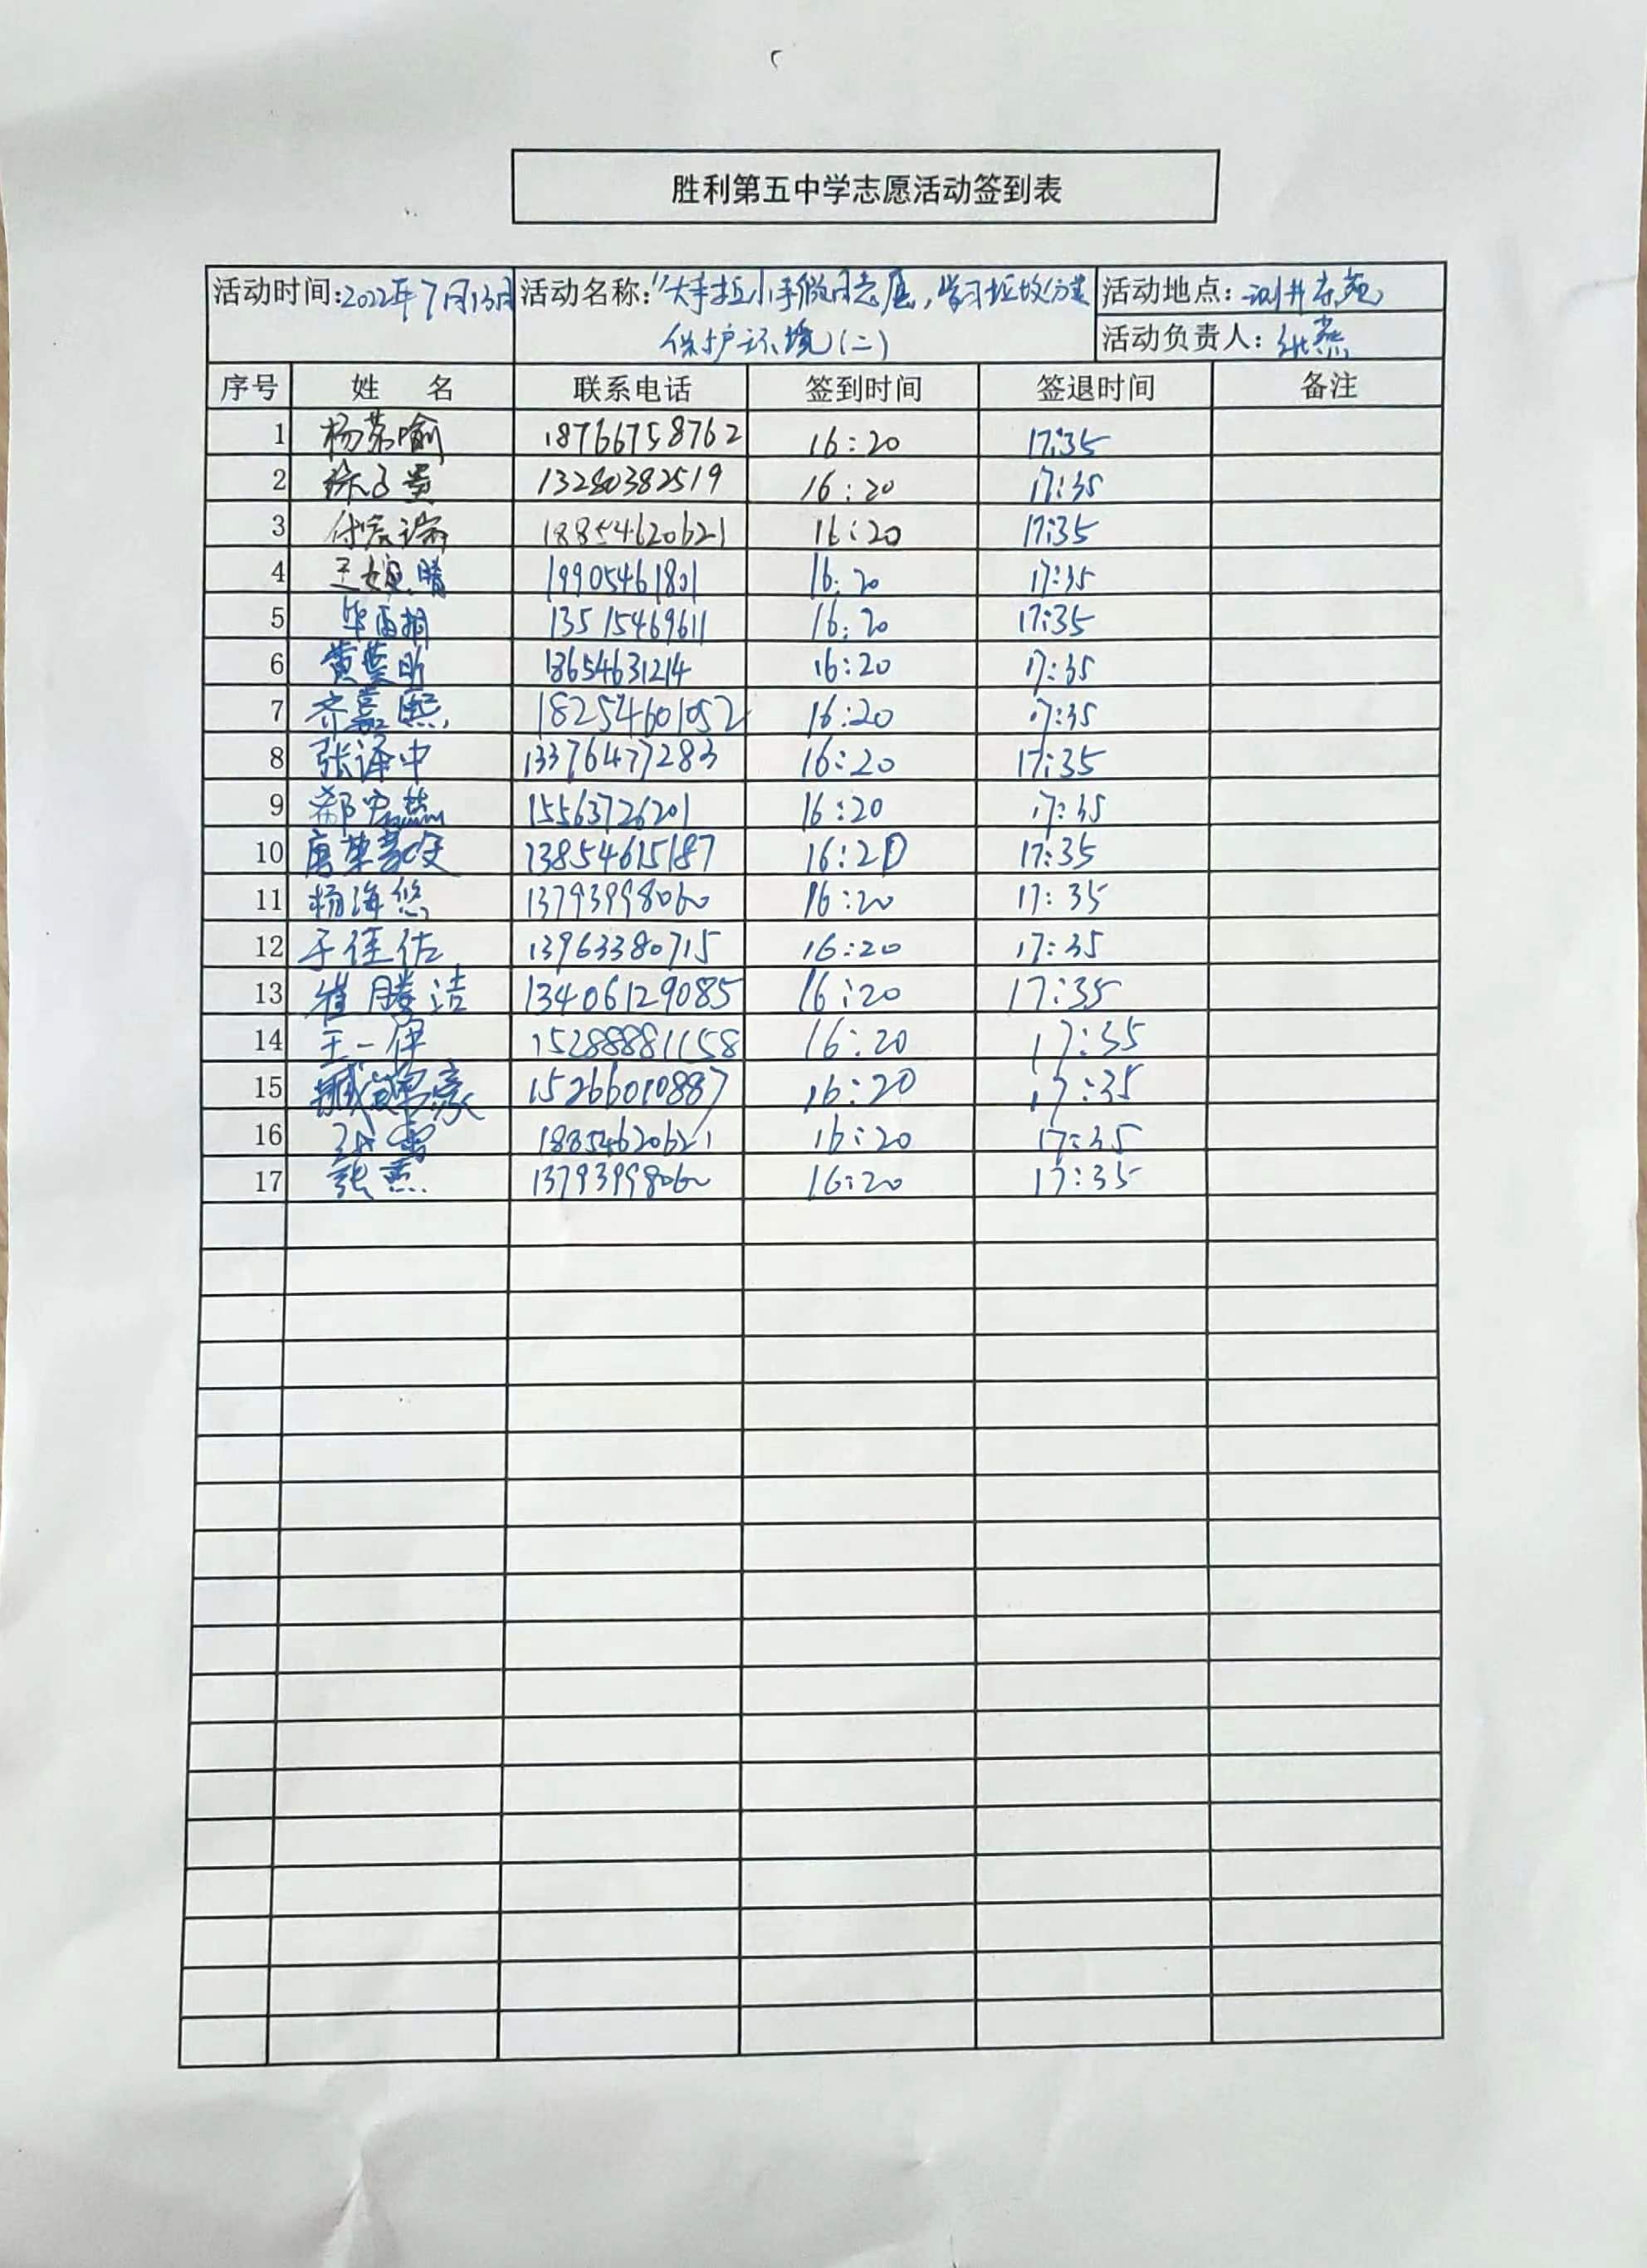 胜利第五中学志愿活动签到表
活动时间:2022年7月13日 活动名称:"大手拉小手假日志愿,学习垃圾分类 活动地点:测井东苑
保护环境(二) 活动负责人:张燕
序号 姓 名 联系电话 签到时间 签退时间 备注
1 杨荞喻 18766758762 16:20 17:35
2 徐子景 13280382519 16:20 17:35
3 付宸瑞 18854620621 16:20 17:35
4 王婉晴 19905461801 16:20 17:35
5 毕雨桐 13515469611 16:20 17:35
6 黄昊昕 13654631214 16:20 17:35
7 齐嘉熙 18254601052 16:20 17:35
8 张译中 13376477283 16:20 17:35
9 郗宏燕 15563726201 16:20 17:35
10 唐荣 13854615187 16:20 17:35
11 杨海悠 13793998060 16:20 17:35
12 于佳佑 13963380715 16:20 17:35
13 崔腾洁 13406129085 16:20 17:35
14 王一伊 15288881158 16:20 17:35
15 臧 豪 15266010887 16:20 17:35
16 18854620621 16:20 17:35
17 张燕 13793998060 16:20 17:35